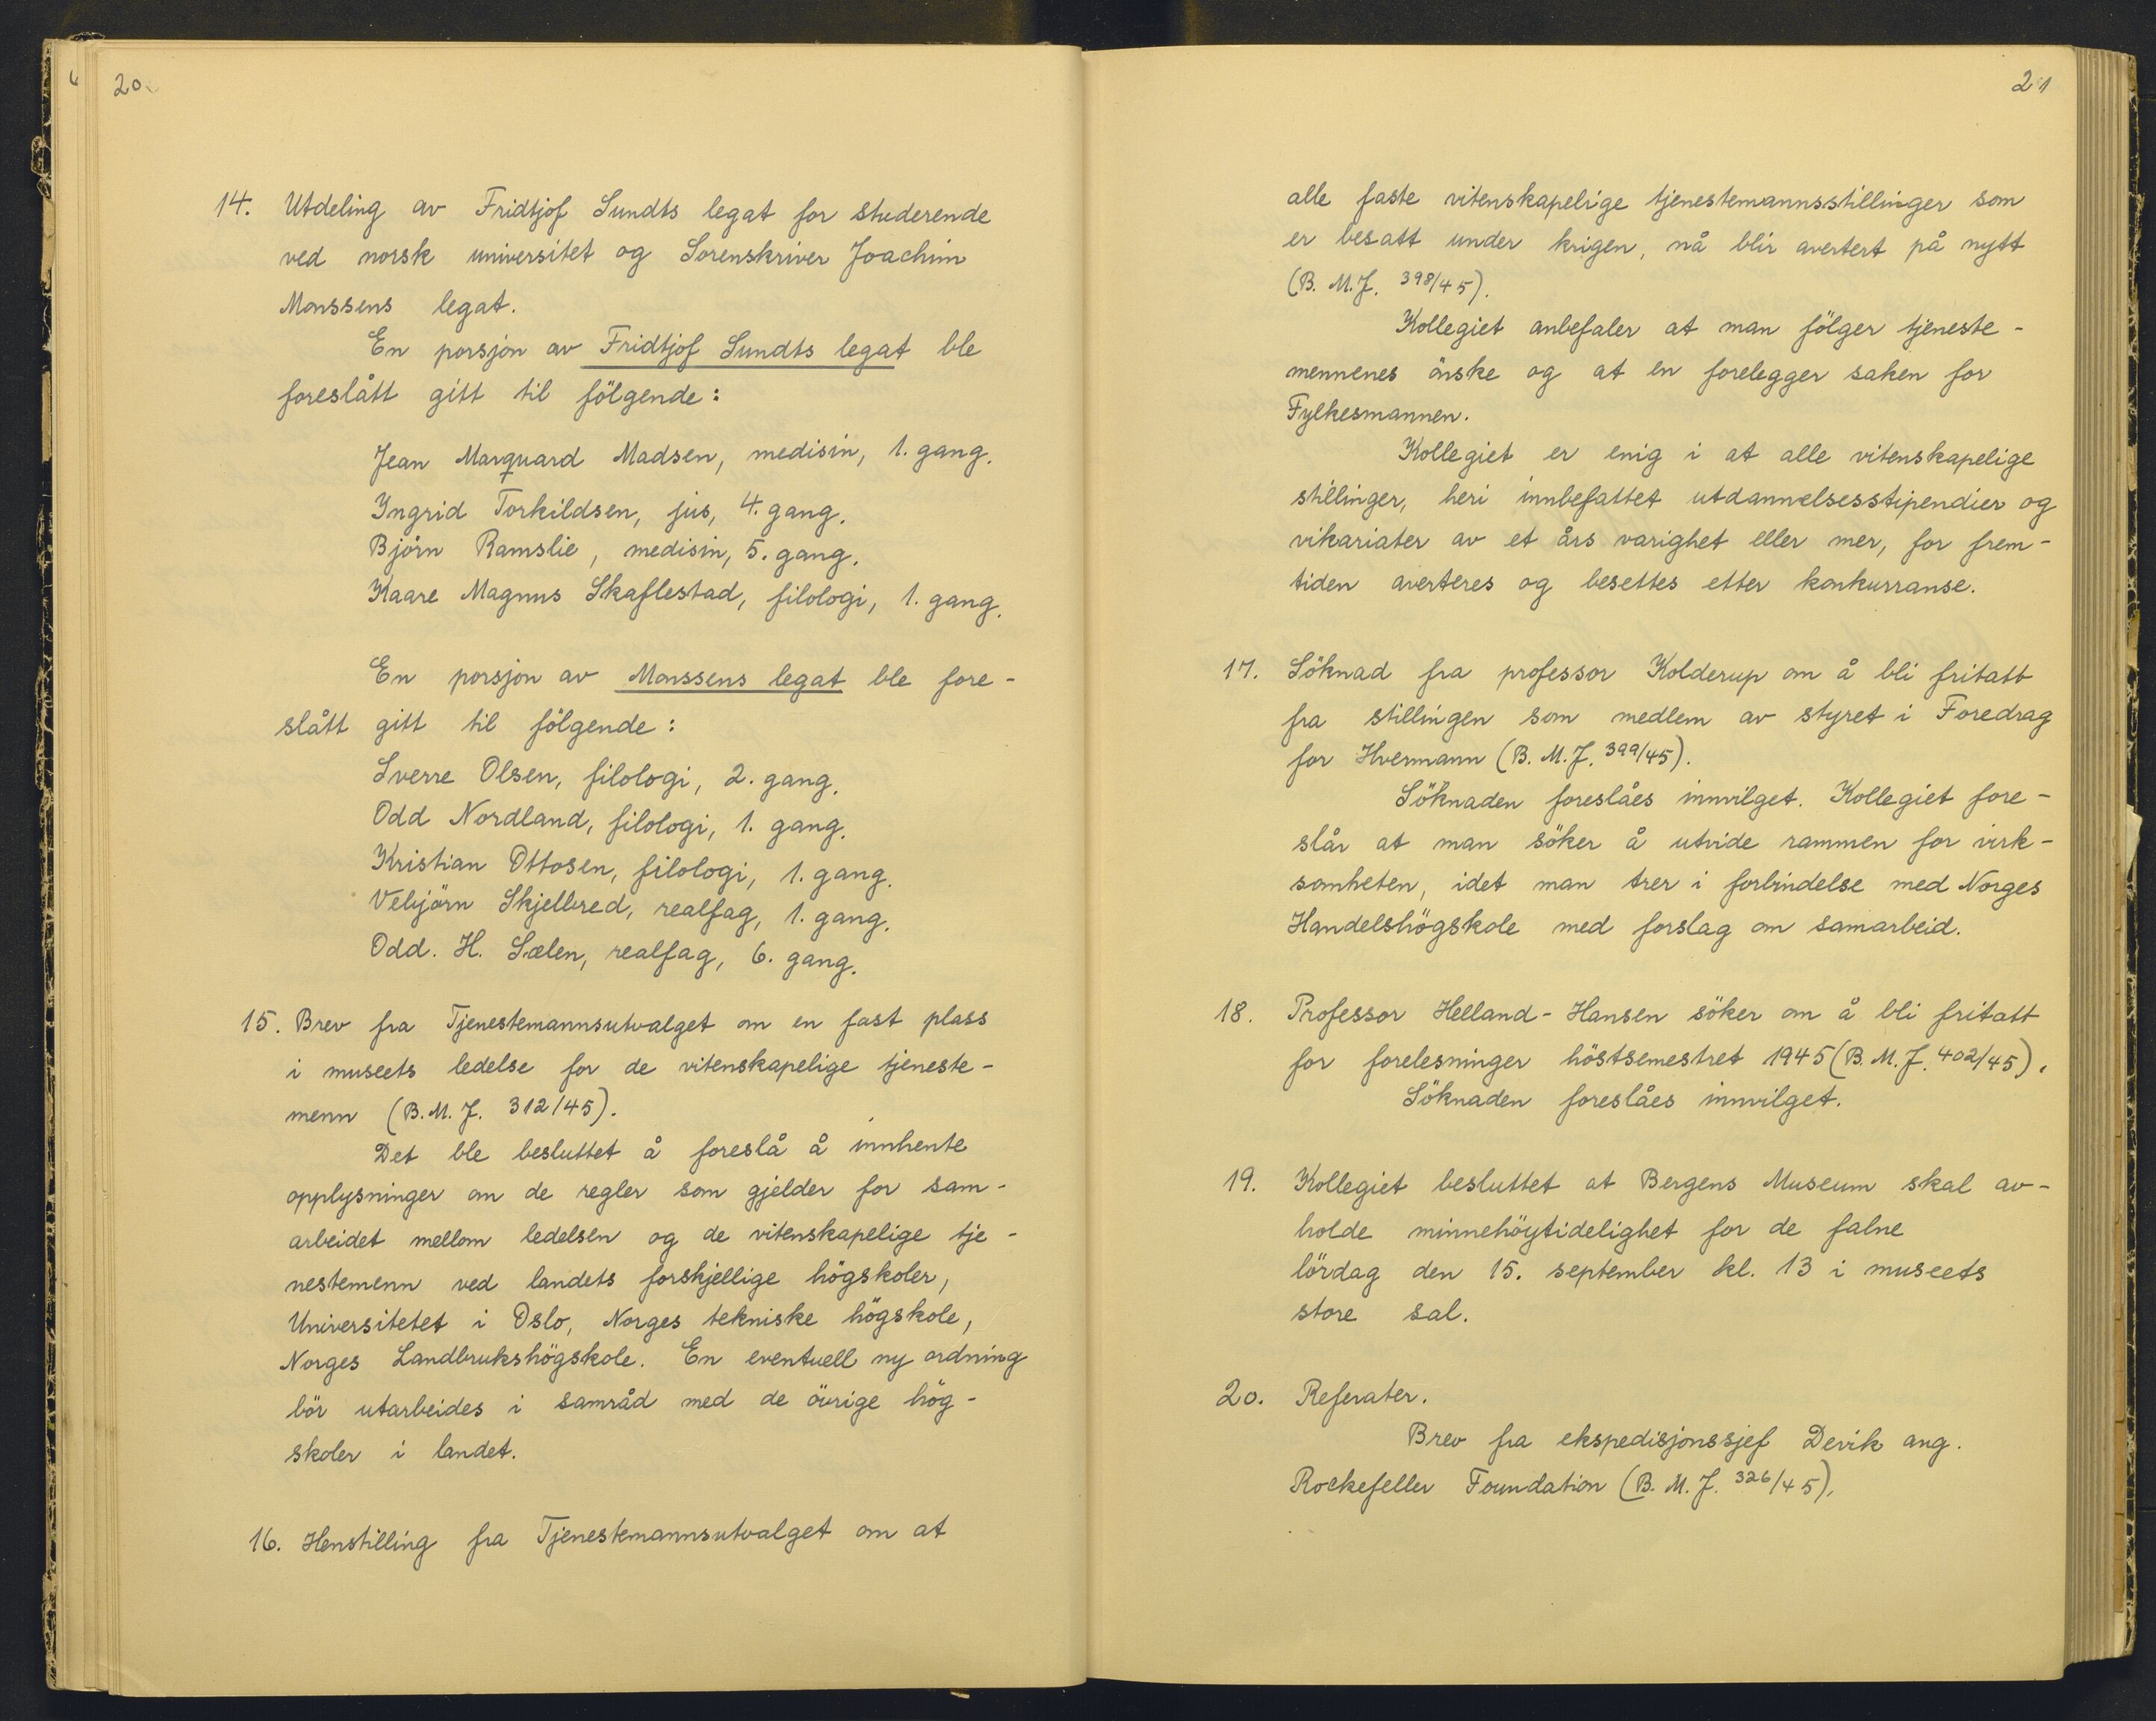 20
14. Utdeling av Fridtjof Sundts legat for studerende
ved norsk universitet og Sorenskriver Joachim
Monssens legat.
En porsjon av Fridtjof Sundts legat ble
foreslått gitt til fölgende:
Jean Marquard Madsen, medisin, 1. gang.
Ingrid Torkildsen, jus, 4. gang.
Björn Ramslie, medisin, 5. gang.
Kaare Magnus Skaflestad, filologi, 1. gang.
En porsjon av Monssens legat ble fore-
slått gitt til fölgende:
Sverre Olsen, filologi, 2. gang.
Odd Nordland, filologi, 1. gang.
Kristian Ottosen, filologi, 1. gang.
Vebjörn Skjelbred, realfag, 1. gang.
Odd. H. Sælen, realfag, 6. gang.
15. Brev fra Tjenestemannsutvalget om en fast plass
i museets ledelse for de vitenskapelige tjeneste-
menn (B. M. J. 312/45).
Det ble besluttet å foreslå å innhente
opplysninger om de regler som gjelder for sam-
arbeidet mellom ledelsen og de vitenskapelige tje-
nestemenn ved landets forskjellige högskoler,
Universitetet i Oslo, Norges tekniske högskole,
Norges Landbrukshögskole. En eventuell ny ordning
bör utarbeides i samråd med de övrige hög-
skoler i landet.
16. Henstilling fra Tjenestemannsutvalget om at
21
alle faste vitenskapelige tjenestemannsstillinger som
er besatt under krigen, nå blir avertert på nytt
(B. M. J. 398/45).
Kollegiet anbefaler at man fölger tjeneste-
mennenes önske og at en forelegger saken for
Fylkesmannen.
Kollegiet er enig i at alle vitenskapelige
stillinger, heri innbefattet utdannelsesstipendier og
vikariater av et års varighet eller mer, for frem-
tiden averteres og besettes etter konkurranse.
17. Söknad fra professor Kolderup om å bli fritatt
fra stillingen som medlem av styret i Foredrag
for Hvermann (B. M. J. 399/45).
Söknaden foreslåes innvilget. Kollegiet fore-
slår at man söker å utvide rammen for virk-
somheten, idet man trer i forbindelse med Norges
Handelshögskole med forslag om samarbeid.
18. Professor Helland-Hansen söker om å bli fritatt
for forelesninger höstsemestret 1945 (B. M. J. 402/45).
Söknaden foreslåes innvilget.
19. Kollegiet besluttet at Bergens Museum skal av-
holde minnehöytidelighet for de falne
lördag den 15. september kl. 13 i museets
store sal.
20. Referater.
Brev fra ekspedisjonssjef Devik ang.
Rockefeller Foundation (B. M. J. 326/45).